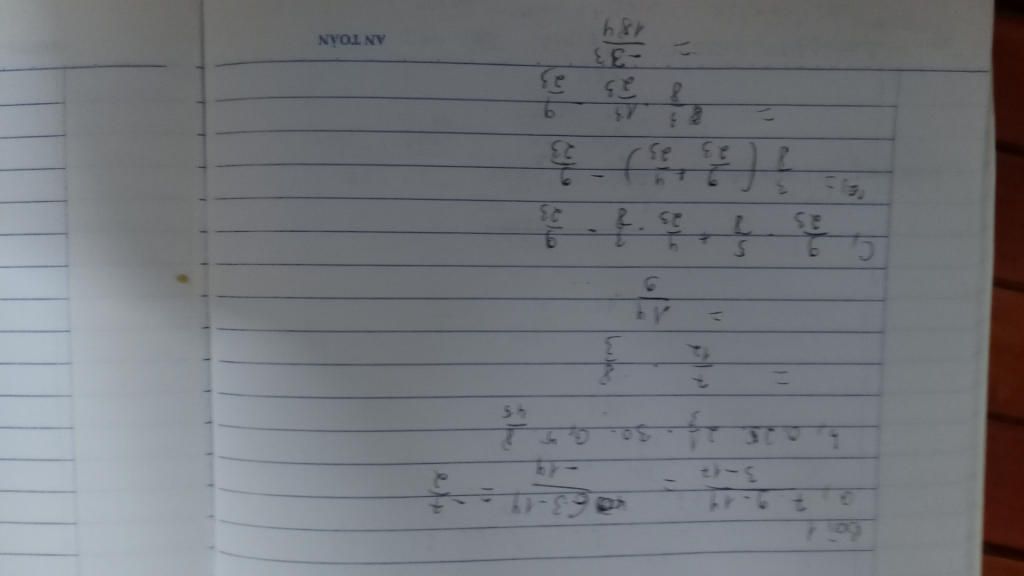 Bài 1
a, 7.9-14 / 3-17 = 63-14 / -14 = -7/2
b, 0,25. 2 1/3 . 30. 0,5. 8/45
= 7/12 . 8/3
= 14/9
C, 9/23 . 5/8 + 4/23 . 3/8 - 9/23
= 3/8 (9/23 + 4/23) - 9/23
= 3/8 . 13/23 - 9/23
= -33/184
AN TOÀN